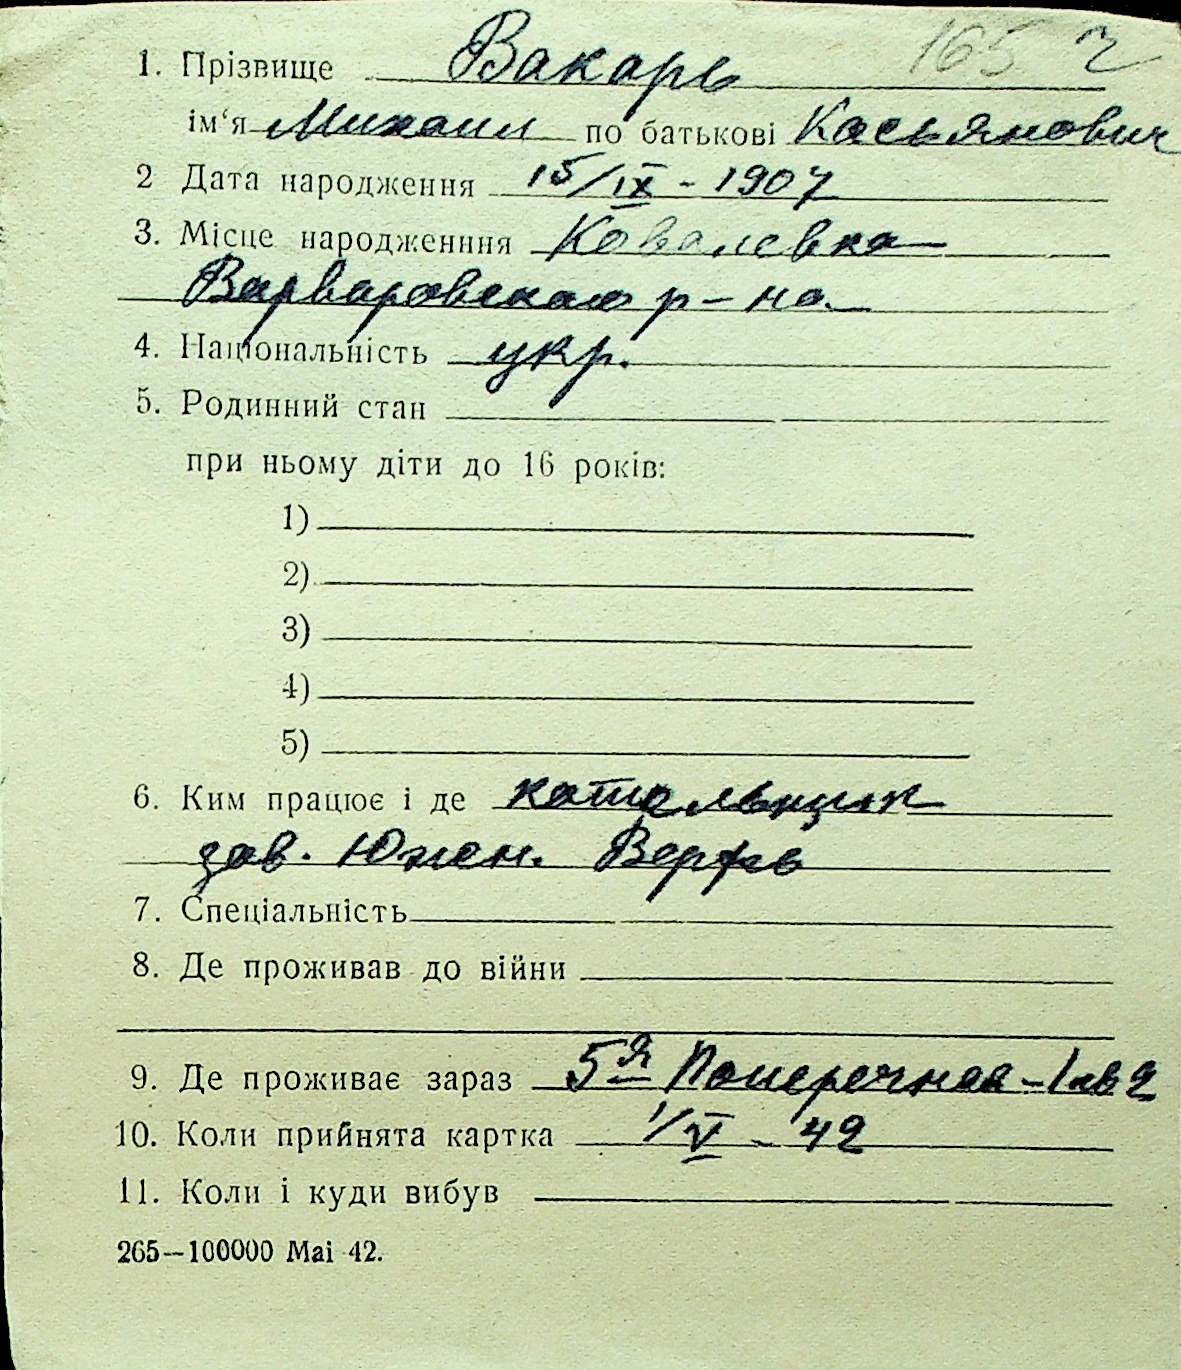 165 2
1. Прізвище Вакарь
ім‘я Михаил по батькові Касьянович
2 Дата народження 15/IX - 1907
3. Місце народженння Ковалевка
Варваровского р-на
4. Національність укр.
5. Родинний стан
при ньому діти до 16 років:
1)
2)
3)
4)
5)
6. Ким працює і де
зав. Южн. Верфь
7. Спеціальність
8. Де проживав до війни
9. Де проживає зараз 5я Поперечная - 1 кв 2
10. Коли прийнята картка 1/V - 42
11. Коли і куди вибув
265—100000 Mai 42.